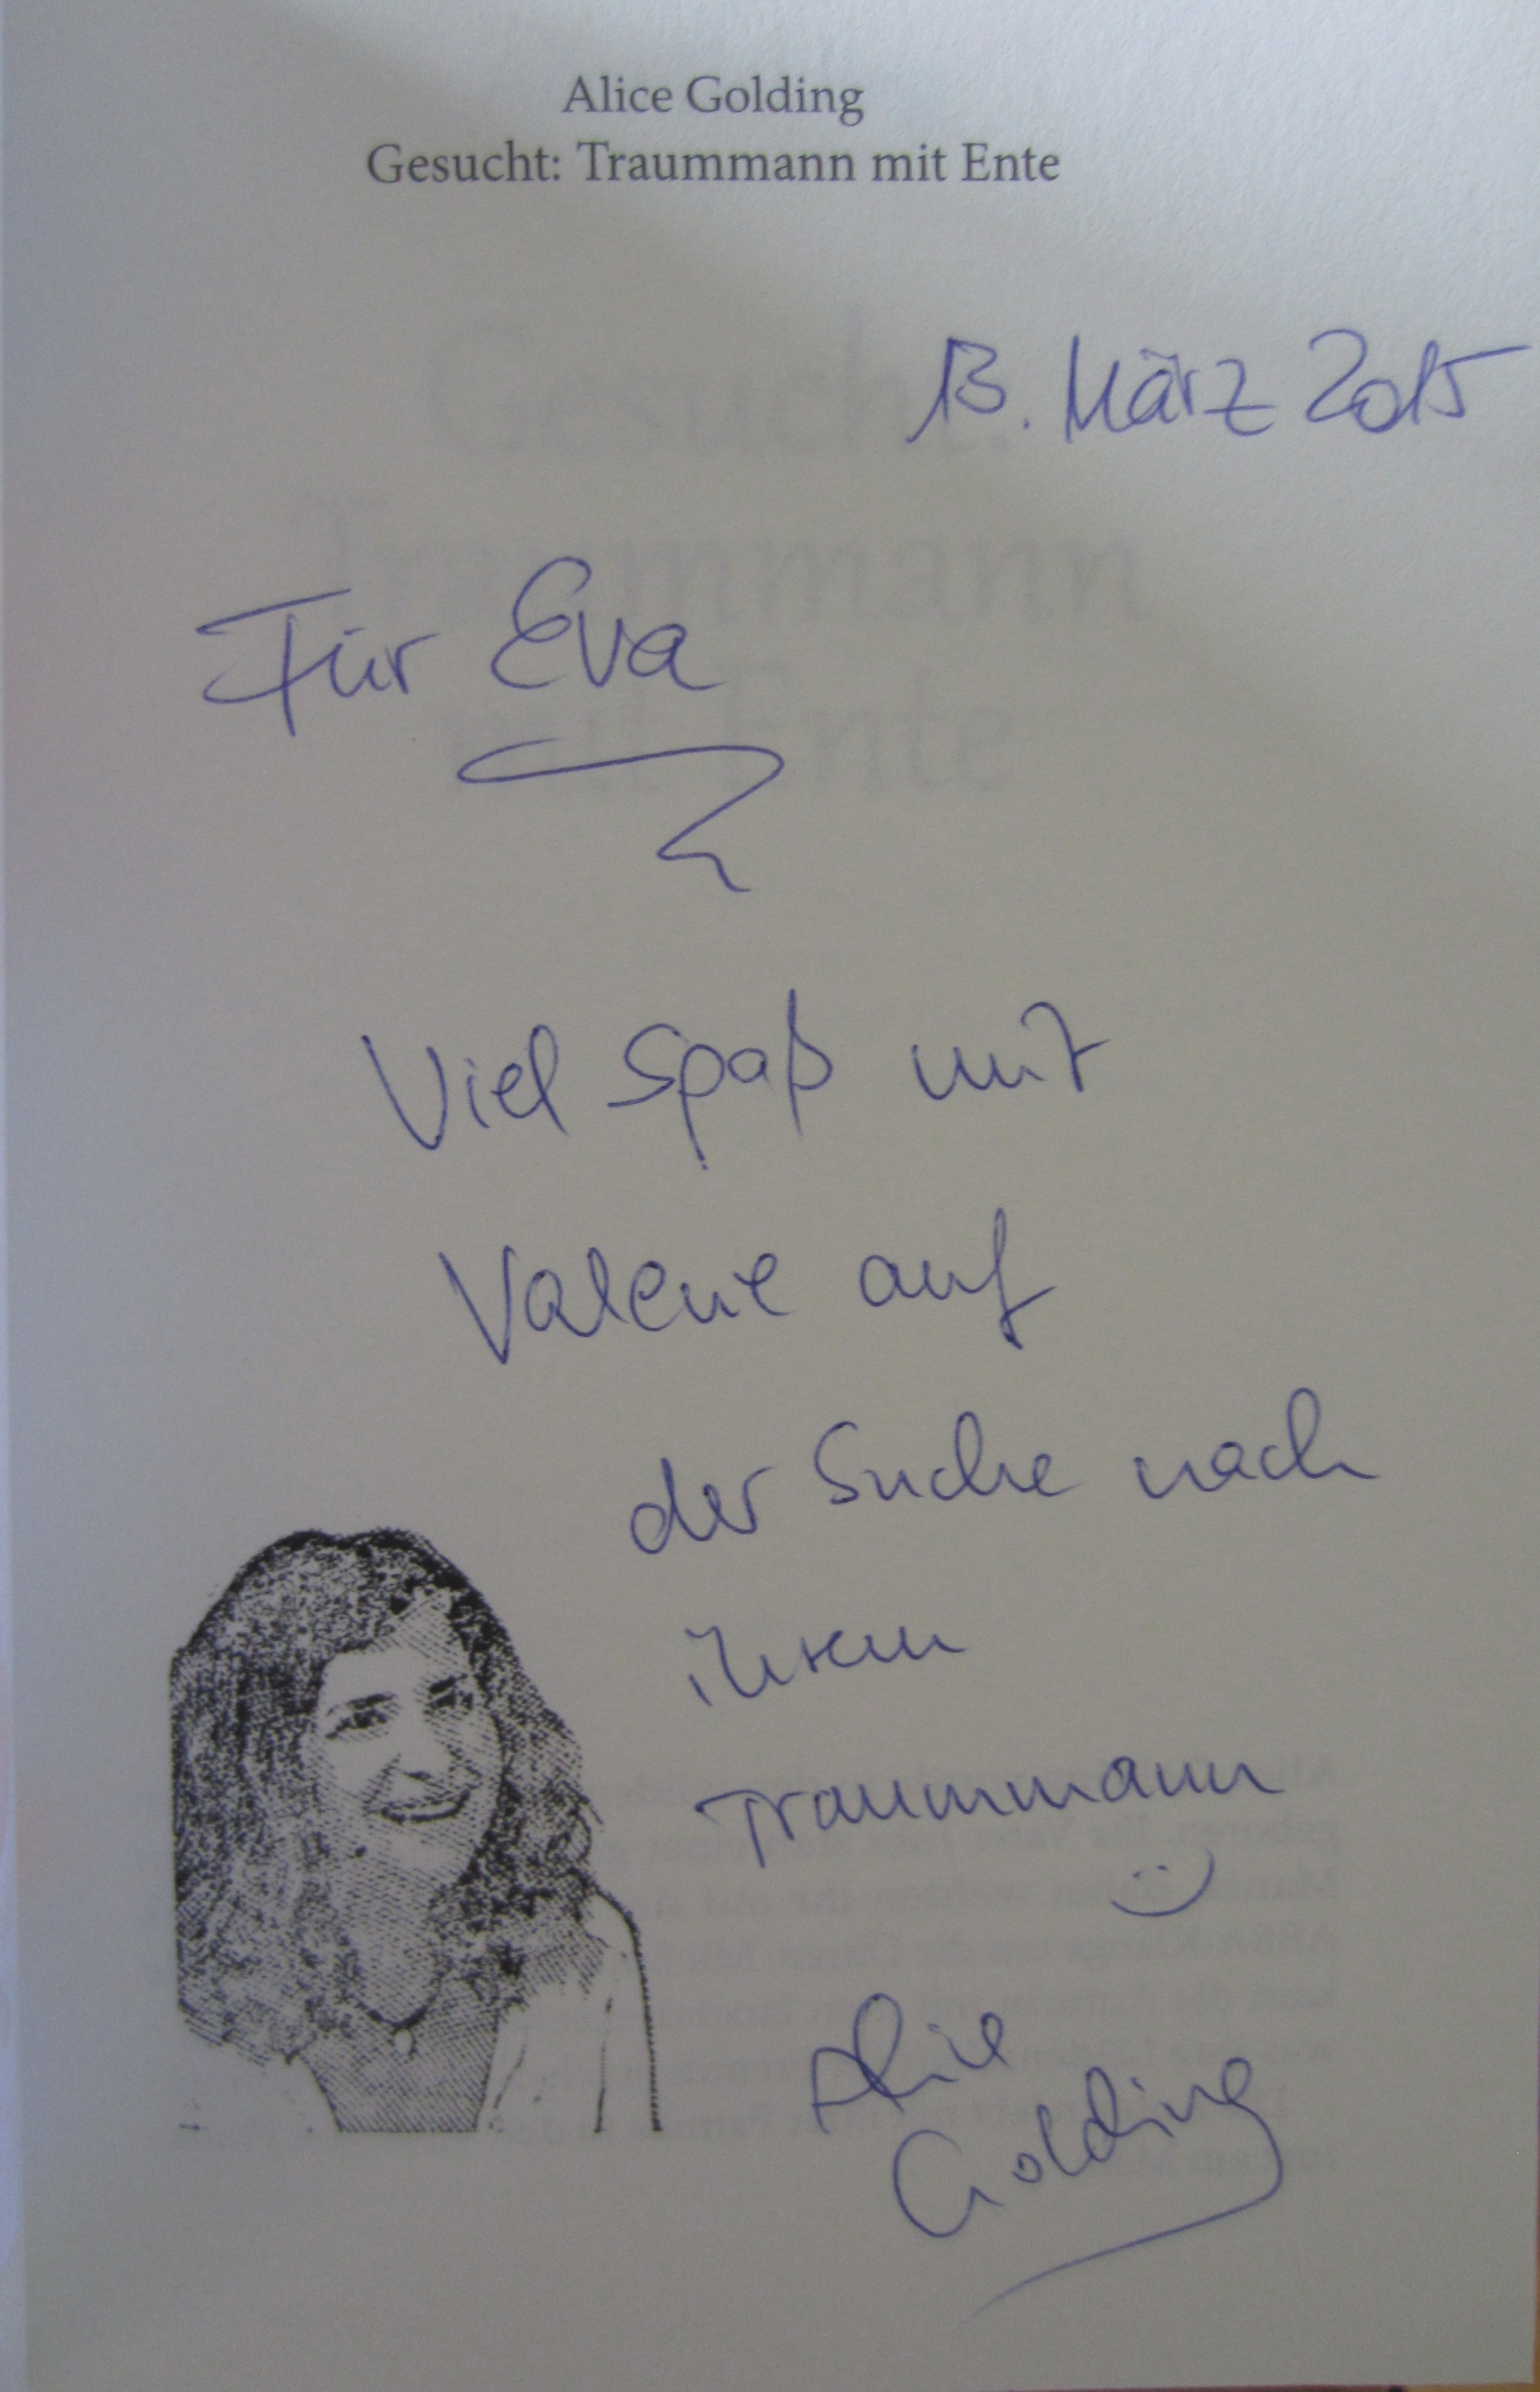 Alice Golding
Gesucht: Traummann mit Ente
13. März 2015
Für Eva
Viel Spaß mit
Valerie auf
der Suche nach
ihrem
Traummann
Alice
Golding